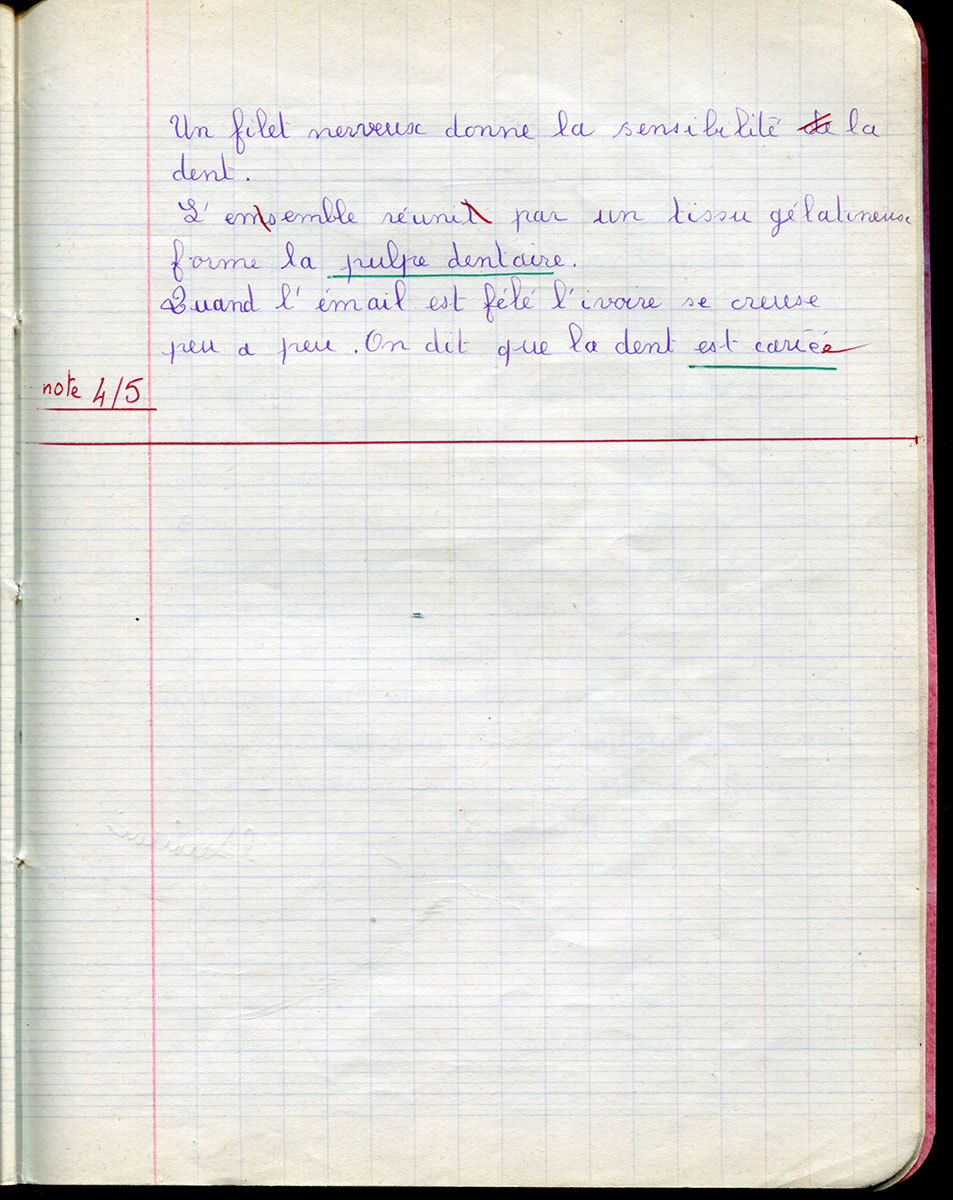 Un filet nerveux donne la sensibilité de la
dent.
L'ensemble réunit par un tissu gélatineux
forme la pulpe dentaire.
Quand l'émail est félé l'ivoire se creuse
peu a peu. On dit que la dent est cariée
note 4/5